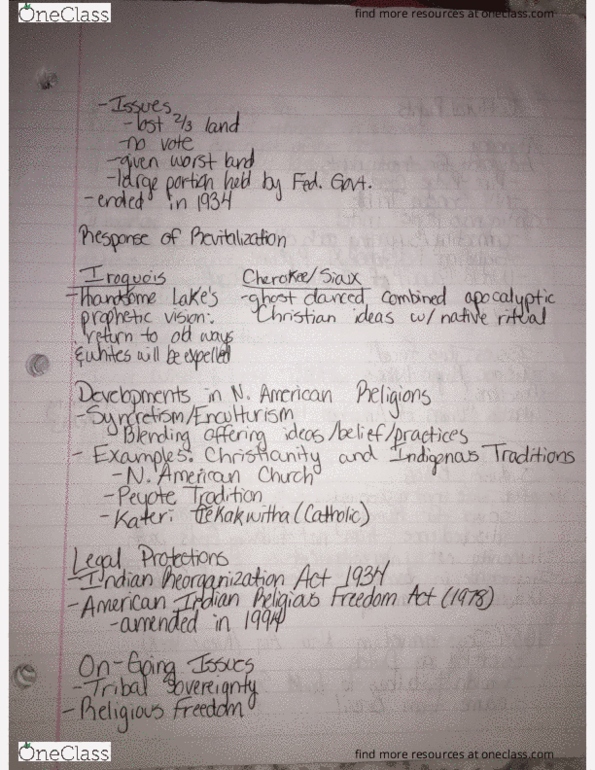 OneClass
find more resources at oneclass.com
- Issues
- lost 2/3 land
- no vote
- given worst land
- large portion held by Fed. Govt.
- ended in 1934
Response of Revitalization
Iroquois Cherokee/Sioux
- Handsome Lake's - ghost danced, combined apocalyptic
prophetic vision: Christian ideas w/ native ritual
return to old ways
& whites will be expelled
Developments in N. American Religions
- Syncretism/Enculturism
Blending offering ideas/belief/practices
- Examples: Christianity and Indigenous Traditions
- N. American Church
- Peyote Tradition
- Kateri Tekakwitha (Catholic)
Legal Protections
- Indian Reorganization Act 1934
- American Indian Religious Freedom Act (1978)
- amended in 1994
On-Going Issues
- Tribal Sovereignty
- Religious Freedom
OneClass
find more resources at oneclass.com